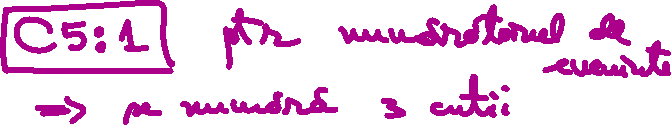 C5:1 ptr numărătorul de cuvinte
=> se numără 3 cutii